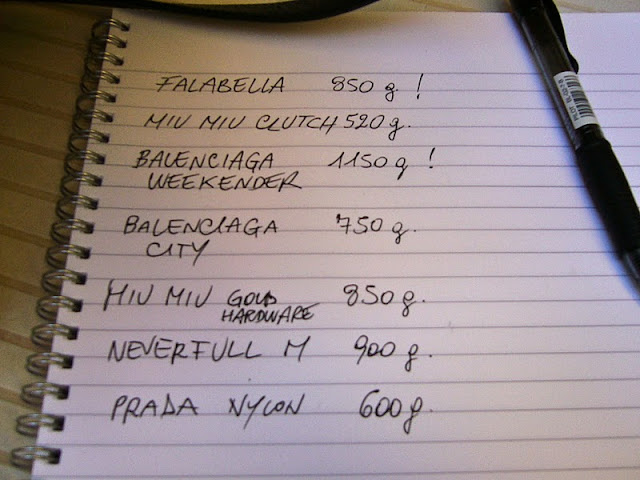 FALABELLA 850 g !
MIU MIU CLUTCH 520 g.
BALENCIAGA 1150 g !
WEEKENDER
BALENCIAGA 750 g.
CITY
MIU MIU GOLD 850 g.
HARDWARE
NEVERFULL M 900 g.
PRADA NYLON 600 g.